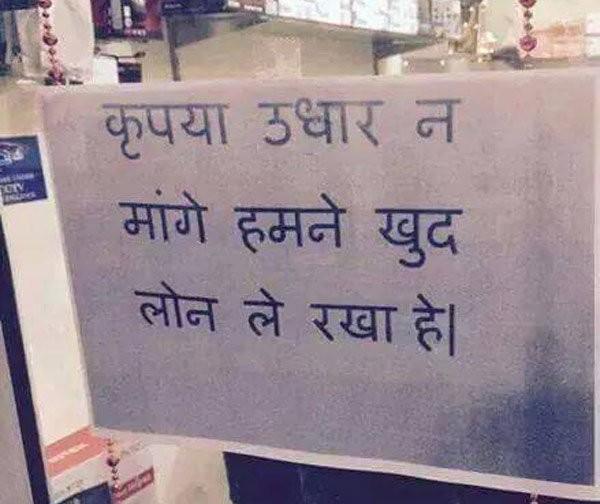 कृपया उधार न
मांगे हमने खुद
लोन ले रखा हे|
CCTV